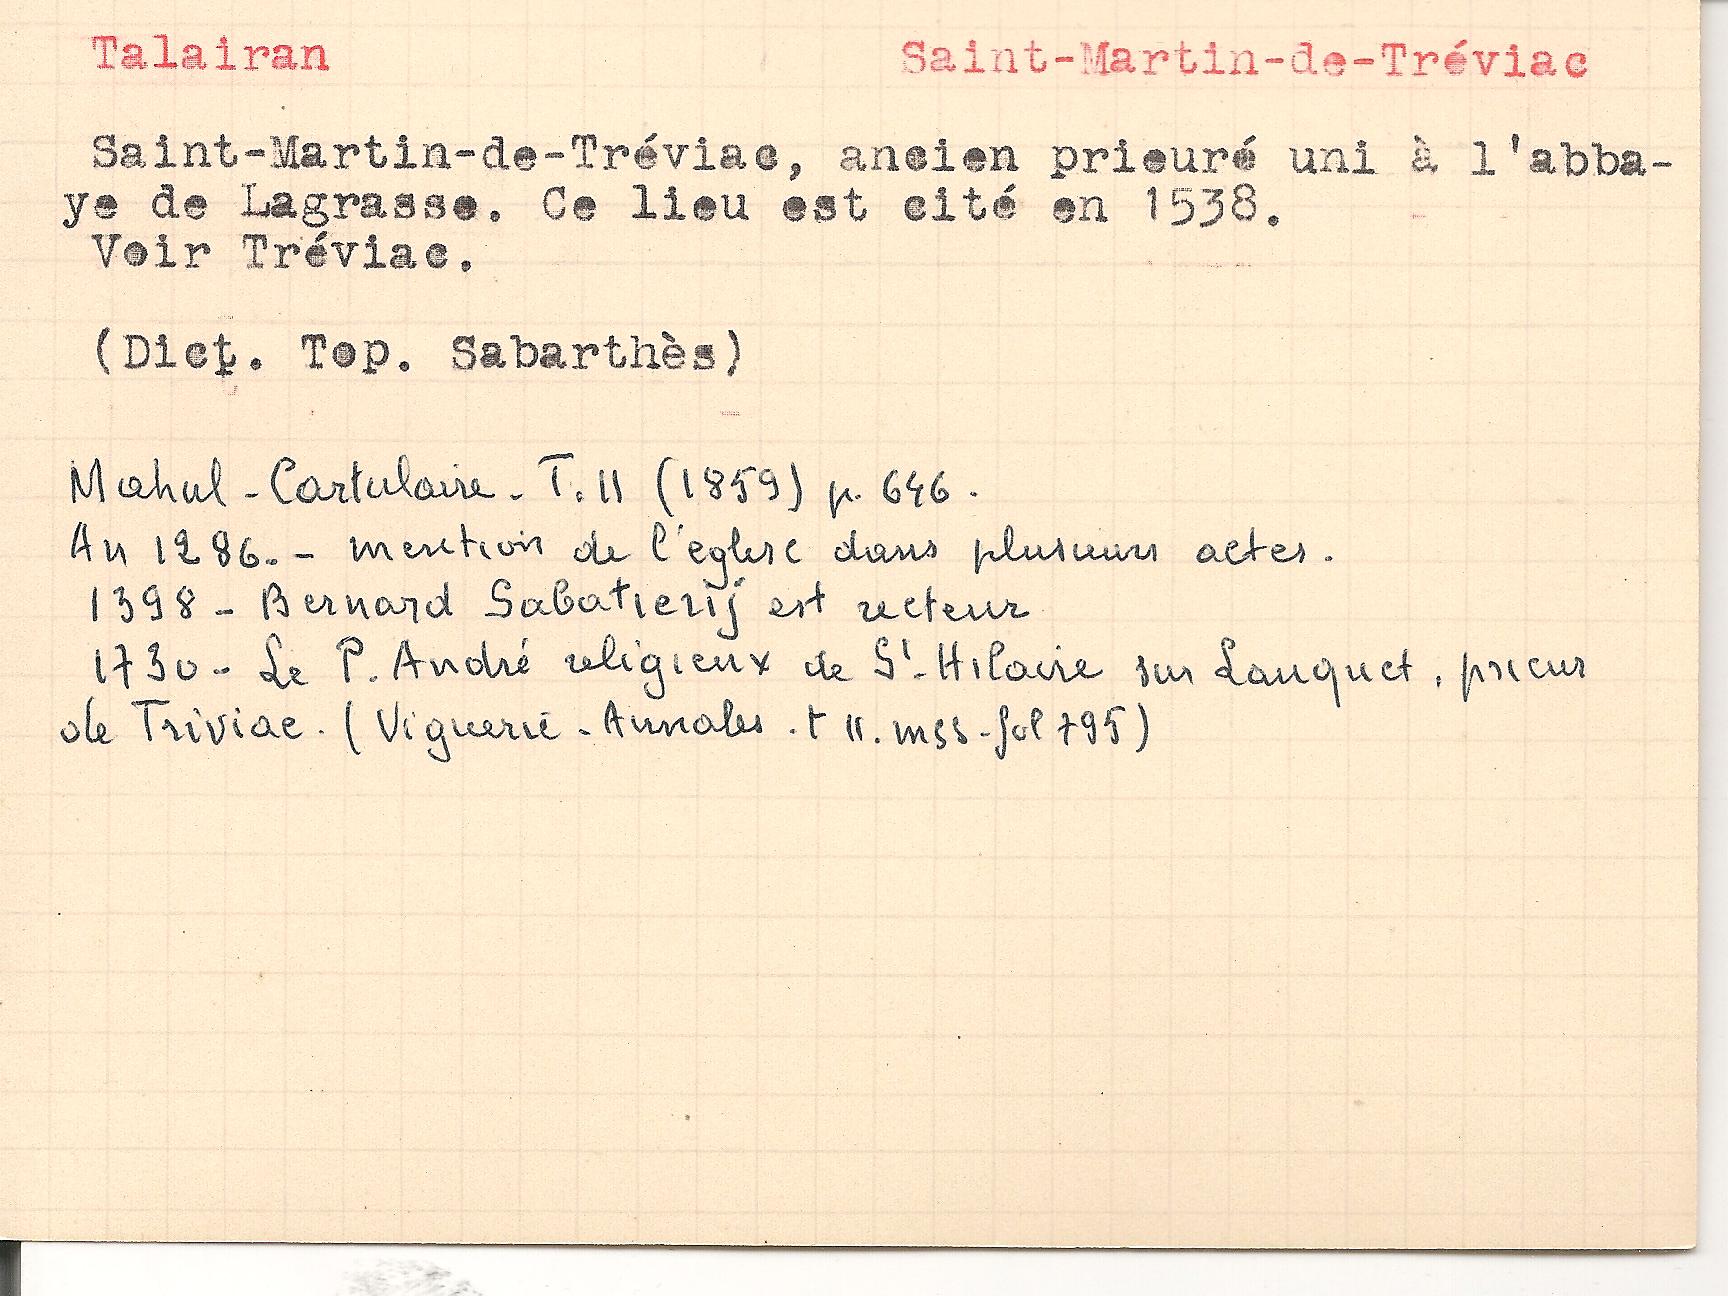 Talairan Saint-Martin-de-Tréviac
Saint-Martin-de-Tréviac, ancien prieuré uni à l'abba-
ye de Lagrasse. Ce lieu est cité en 1538.
Voir Tréviac.
(Dict. Top. Sabarthès)
Mahul - Cartulaire - T. II (1859) p. 646.
An 1286. - mention de l'église dans plusieurs actes.
1398 - Bernard Sabatierij est recteur
1730 - Le P. André religieux de St-Hilaire sur Lauquet, prieur
de Triviac. (Viguerie - Annales. t II. mss - fol 795)